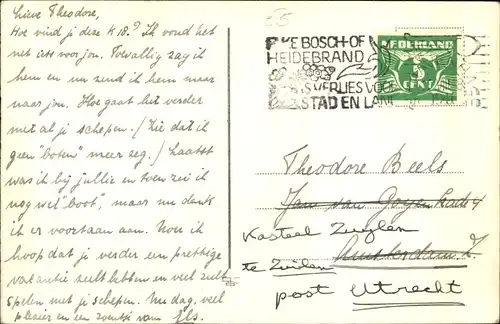 Lieve Theodore,
Hoe vind je deze K 18.? Ik vond het
net iets voor jou. Toevallig zag ik
hem en nu zend ik hem maar
naar jou. Hoe gaat het verder
met al je schepen. (Zie dat ik
geen "boten" meer zeg.) Laatst
was ik bij jullie en toen zei ik
nog wel "boot", maar nu denk
ik er voortaan aan. Nou ik
hoop dat je verder een prettige
vakantie zult hebben en veel zult
spelen met je schepen. Nu dag, veel
plezier en een zoentje van Els.
55
BOSCH- OF
HEIDEBRAND
IS VERLIES VOOR
STAD EN LAND
NEDERLAND
CENT
Theodore Beels
Jan van Goyenkade
Kasteel Zuylen
Amsterdam Z.
te Zuilen
post Utrecht